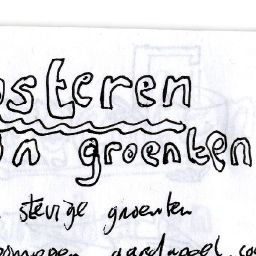 osteren
n groenten
stevige groenten
aardappel, co